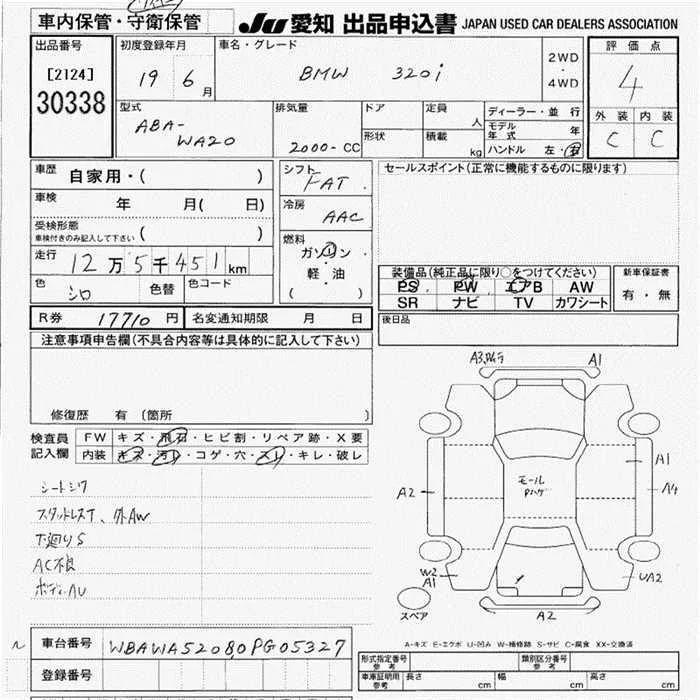 車内保管・守衛保管
JU 愛知 出品申込書 JAPAN USED CAR DEALERS ASSOCIATION
出品番号
[2124]
30338
初度登録年月
19 6 月
車名・グレード
BMW 320i
2WD
・
4WD
評価点
4
外装 内装
C C
型式
ABA-
WA20
排気量
2000-CC
ドア
形状
定員
人
積載
kg
ディーラー・並行
モデル年式 年
ハンドル 左・右
車歴 自家用・( )
車検 年 月( 日)
受検形態
車検付きのみ記入して下さい ( )
走行 12万5千451km
色 シロ 色替 色コード
シフト
FAT
冷房
AAC
燃料
ガソリン・
軽・油
( )
セールスポイント(正常に機能するものに限ります)
装備品(純正品に限り○をつけてください)
PS PW エアB AW
SR ナビ TV カワシート
新車保証書
有・無
R券 17710円 名変通知期限 月 日
後日品
注意事項申告欄(不具合内容等は具体的に記入して下さい)
修復歴 有 (箇所 )
検査員
記入欄
FW キズ・飛石・ヒビ割・リペア跡・X要
内装 キズ・汚レ・コゲ・穴・スレ・キレ・破レ
シートシワ
スタットレスT、外AW
下廻りS
AC不良
ボディAU
A1
A2
モール
Pハゲ
A1
A4
W2
A1
UA2
A2
スペア
A-キズ E-エクボ U-凹み W-補修跡 S-サビ C-腐食 XX-交換済
車台番号 WBAWA52080PG05327
登録番号
形式指定番号
参考
類別区分番号
参考
車庫証明用
参考
長さ cm 幅 cm 高さ cm